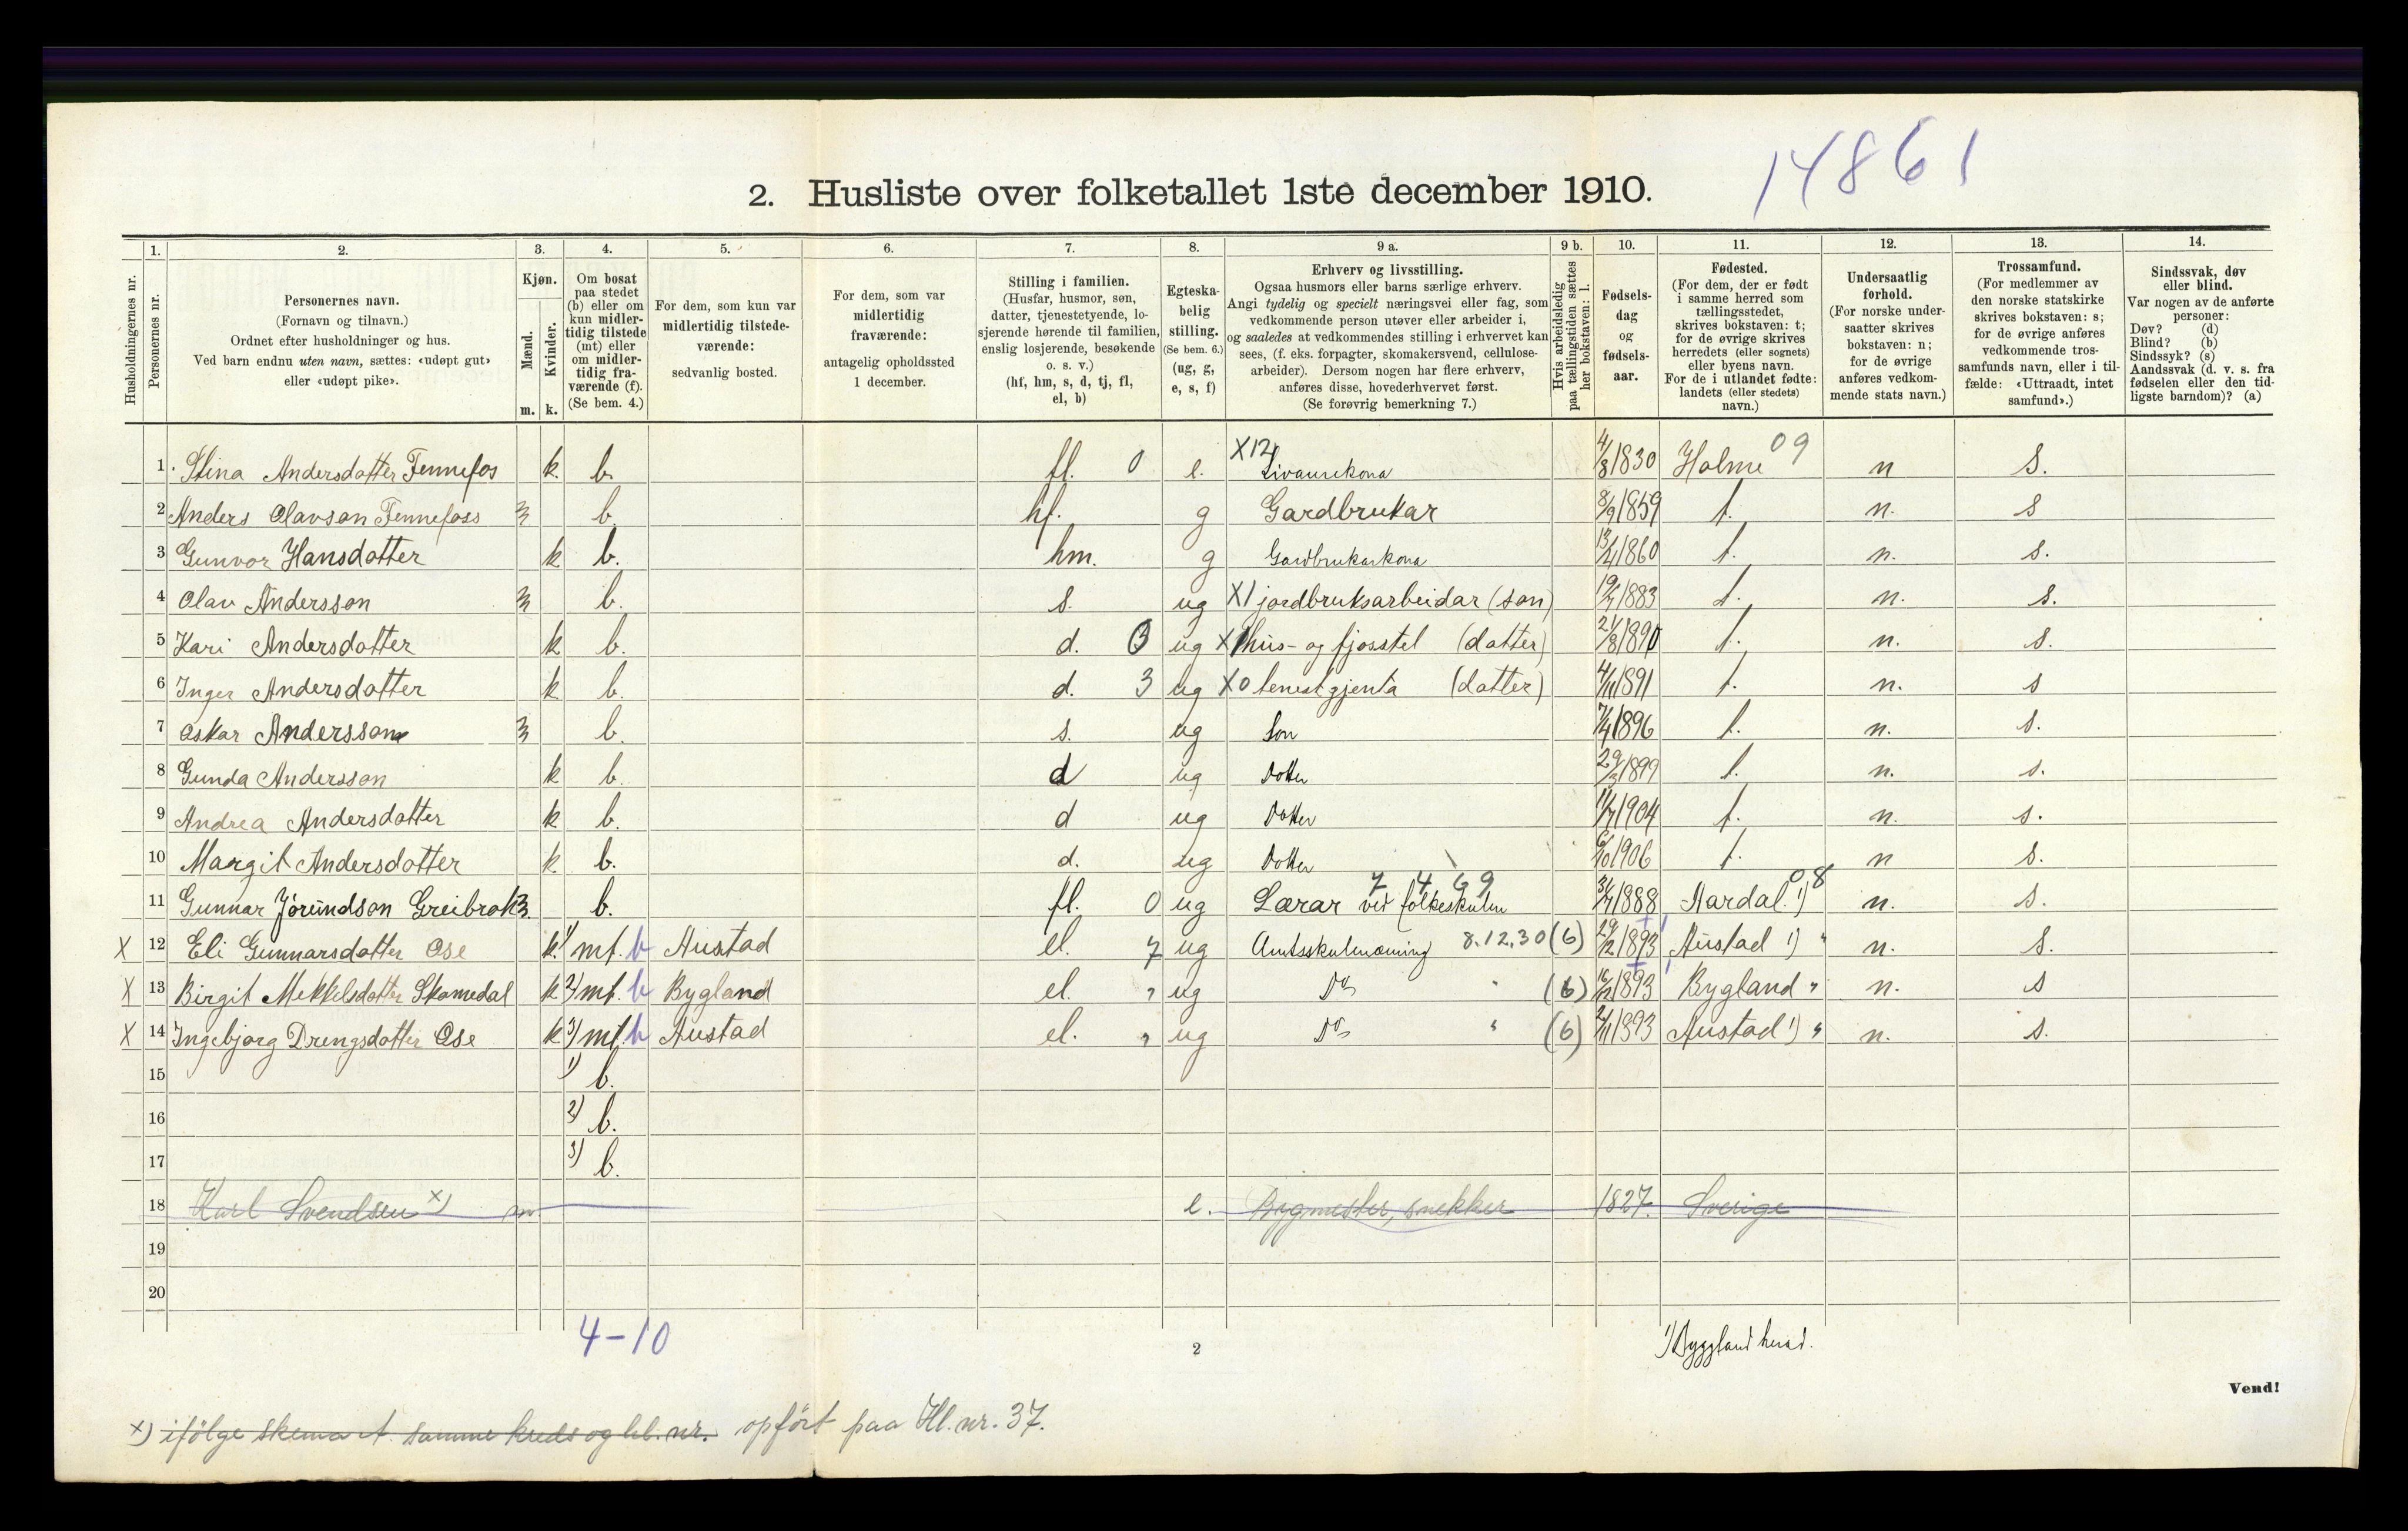 14861
2. Husliste over folketallet 1ste december 1910.
1. 2. 3. 4. 5. 6. 7. 8. 9 a. 9 b. 10. 11. 12. 13. 14.
Husholdningernes nr.
Personernes nr.
Personernes navn.
(Fornavn og tilnavn.)
Ordnet efter husholdninger og hus.
Ved barn endnu uten navn, sættes: «udøpt gut»
eller «udøpt pike».
Kjøn.
Mænd.
Kvinder.
m. k.
Om bosat
paa stedet
(b) eller om
kun midler-
tidig tilstede
(mt) eller
om midler-
tidig fra-
værende (f).
(Se bem. 4.)
For dem, som kun var
midlertidig tilstede-
værende:
sedvanlig bosted.
For dem, som var
midlertidig
fraværende:
antagelig opholdssted
1 december.
Stilling i familien.
(Husfar, husmor, søn,
datter, tjenestetyende, lo-
sjerende hørende til familien,
enslig losjerende, besøkende
o. s. v.)
(hf, hm, s, d, tj, fl,
el, b)
Egteska-
belig
stilling.
(Se bem. 6.)
(ug, g,
e, s, f)
Erhverv og livsstilling.
Ogsaa husmors eller barns særlige erhverv.
Angi tydelig og specielt næringsvei eller fag, som
vedkommende person utøver eller arbeider i,
og saaledes at vedkommendes stilling i erhvervet kan
sees, (f. eks. forpagter, skomakersvend, cellulose-
arbeider). Dersom nogen har flere erhverv,
anføres disse, hovederhvervet først.
(Se forøvrig bemerkning 7.)
Hvis arbeidsledig
paa tællingstiden sættes
her bokstaven: l.
Fødsels-
dag
og
fødsels-
aar.
Fødested.
(For dem, der er født
i samme herred som
tællingsstedet,
skrives bokstaven: t;
for de øvrige skrives
herredets (eller sognets)
eller byens navn.
For de i utlandet fødte:
landets (eller stedets)
navn.)
Undersaatlig
forhold.
(For norske under-
saatter skrives
bokstaven: n;
for de øvrige
anføres vedkom-
mende stats navn.)
Trossamfund.
(For medlemmer av
den norske statskirke
skrives bokstaven: s;
for de øvrige anføres
vedkommende tros-
samfunds navn, eller i til-
fælde: «Uttraadt, intet
samfund».)
Sindssvak, døv
eller blind.
Var nogen av de anførte
personer:
Døv? (d)
Blind? (b)
Sindssyk? (s)
Aandssvak (d. v. s. fra
fødselen eller den tid-
ligste barndom)? (a)
1 Stina Andersdatter Fennefos k. b. fl. 0 e. X12 Livaurekona 4/8 1830 Holme 09 n s.
2 Anders Olavson Fennefoss m b. hf. g Gardbrukar 8/9 1859 t. n. s
3 Gunvor Hansdatter k b. hm. g Gardbrukarkona 1860 t. n. s.
4 Olav Andersson m b. s. ug X1 jordbruksarbeidar (son) 1883 t. n. s.
5 Kari Andersdatter k b. d. 3 ug X1 hus- og fjosstel (datter) 24/8 1890 t. n. s.
6 Inger Andersdatter k b. d. 3 ug X0 tenestgjenta (datter) 4/11 1891 t. n. s
7 Oskar Andersson m b. s. ug Son 7/4 1896 t. n. s.
8 Gunda Andersson k b. d ug Dotter 1899 t. n. s.
9 Andrea Andersdatter k b. d ug Dotter 1904 t. n. s.
10 Margit Andersdotter k. b. d. ug Dotter 6/10 1906 t. n s.
11 Gunnar Jørundson Greibrok m. b. fl. 0 ug Lærar ved folkeskulen 7 4 69 1888 Aardal 1) 08 n. s.
X 12 Eli Gunnarsdatter Ose k. 1) mt. b Austad el. 7 ug Amtsskulnæming 8.12.30 (6) 29/12 1893 Austad 1) " n. s.
X 13 Birgit Mekkelsdatter Skomedal k 2) mt. b Bygland el. " ug Do " (6) 16/12 1893 Bygland " n. s
X 14 Ingebjorg Drengsdatter Ose k 3) mt. b Austad el. " ug Do " (6) 2/11 1893 Austad 1) " n. s.
15 1) b.
16 2) b.
17 3) b.
18 Karl Svendsen x) m e. Bygmester, snekker 1827. Sverige
19
20
4-10
2
1) Byggland herad.
Vend!
x) ifölge skema A. samme kreds og hl. nr. opfört paa Hl. nr. 37.